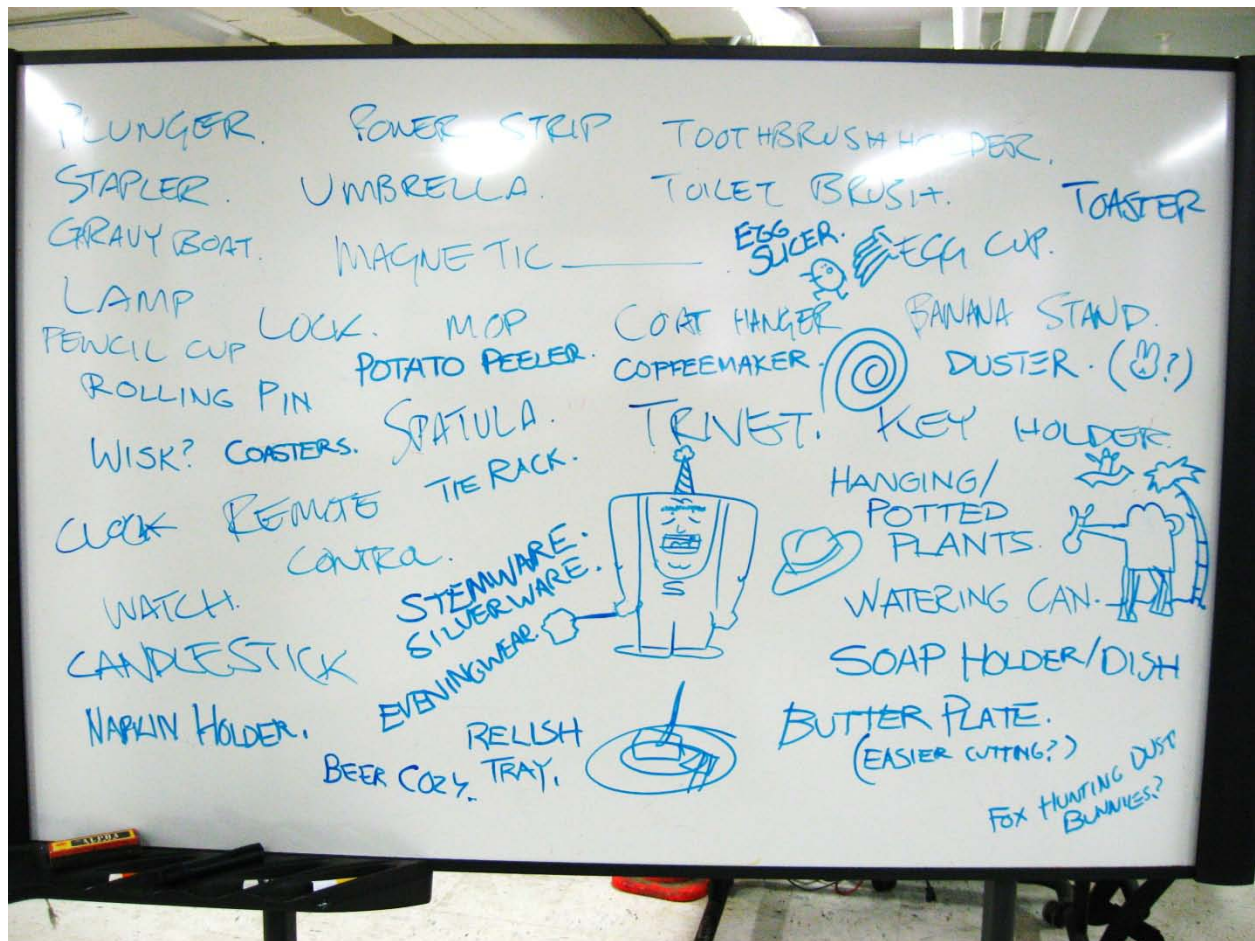 PLUNGER. POWER STRIP TOOTHBRUSH HOLDER.
STAPLER. UMBRELLA. TOILET BRUSH. TOASTER
GRAVY BOAT. MAGNETIC ______ . EGG SLICER. EGG CUP.
LAMP
PENCIL CUP LOCK. MOP COAT HANGER BANANA STAND.
POTATO PEELER. COFFEEMAKER. DUSTER. ( ?)
ROLLING PIN
SPATULA. TRIVET. KEY HOLDER.
WISK? COASTERS.
TIE RACK.
CLOCK REMOTE
CONTROL.
HANGING/
POTTED
PLANTS.
STEMWARE.
SILVERWARE.
EVENINGWEAR.
WATCH.
WATERING CAN.
CANDLESTICK
SOAP HOLDER/DISH
NAPKIN HOLDER.
RELISH
TRAY.
BEER COZY.
BUTTER PLATE.
(EASIER CUTTING?)
FOX HUNTING DUST
BUNNIES?
ALPHA